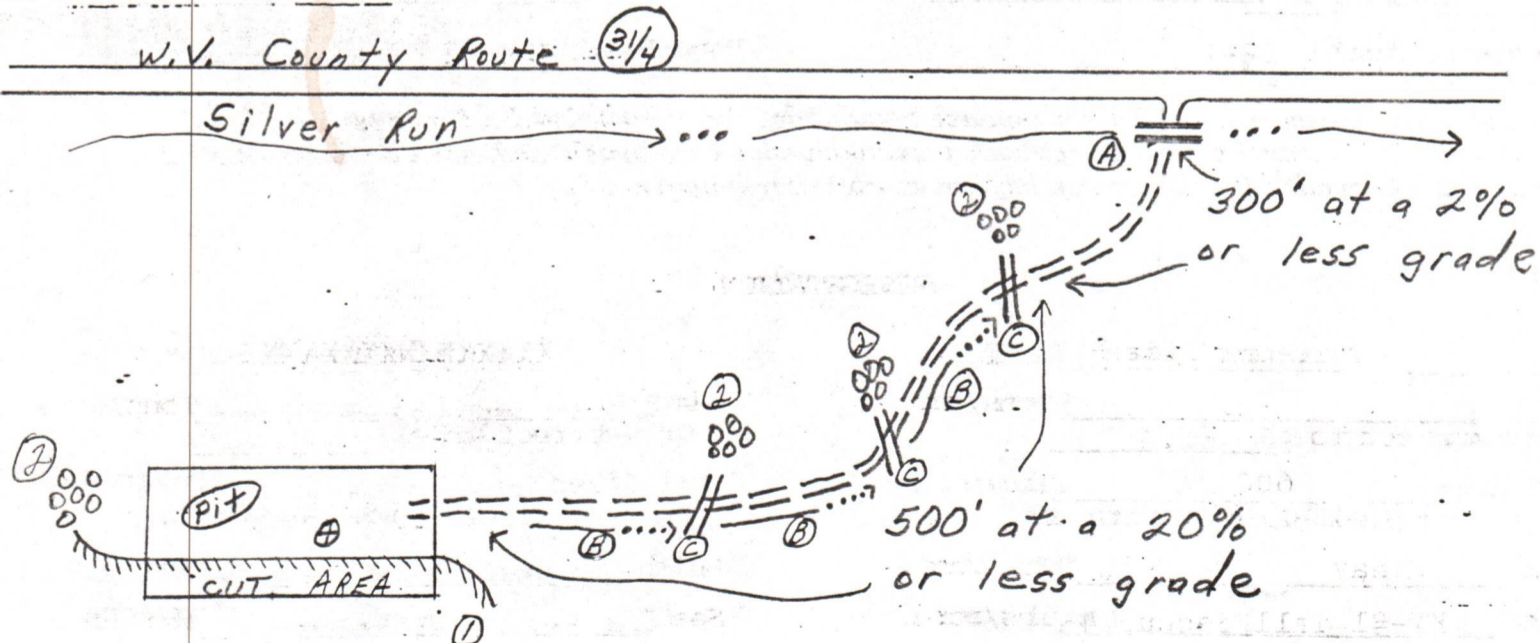 W.V. County Route 31/4
Silver Run
A
300' at a 2%
or less grade
2
C
2
B
2
C
2
pit
B
C
B
500' at a 20%
or less grade
CUT AREA
1